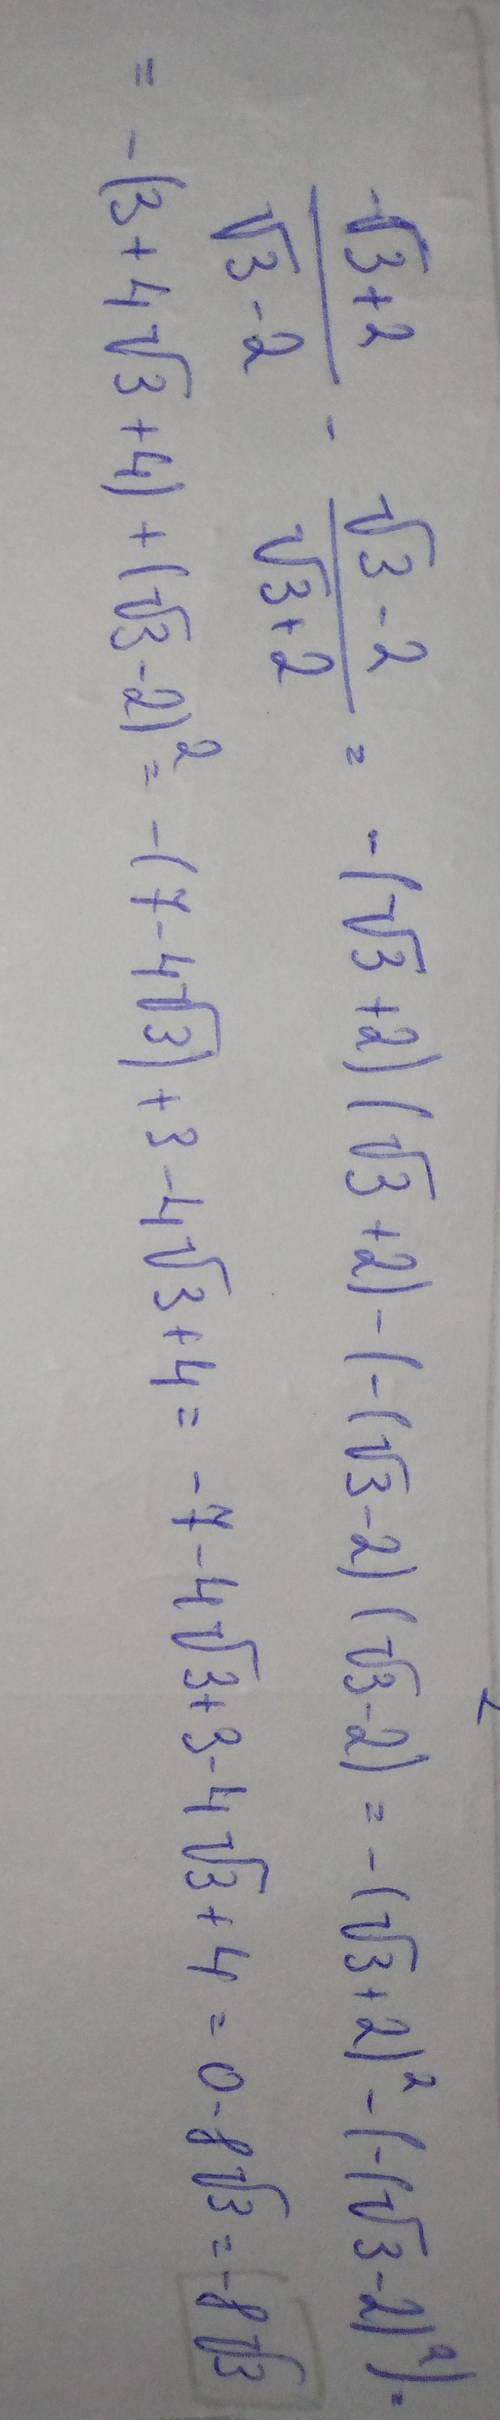 (√3+2)/(√3-2) - (√3-2)/(√3+2) = -(√3+2)(√3+2)-(-(√3-2)(√3-2) = -(√3+2)²-(-(√3-2)²)=
= -(3+4√3+4)+(√3-2)² = -(7-4√3)+3-4√3+4 = -7-4√3+3-4√3+4 = 0-8√3 = -8√3